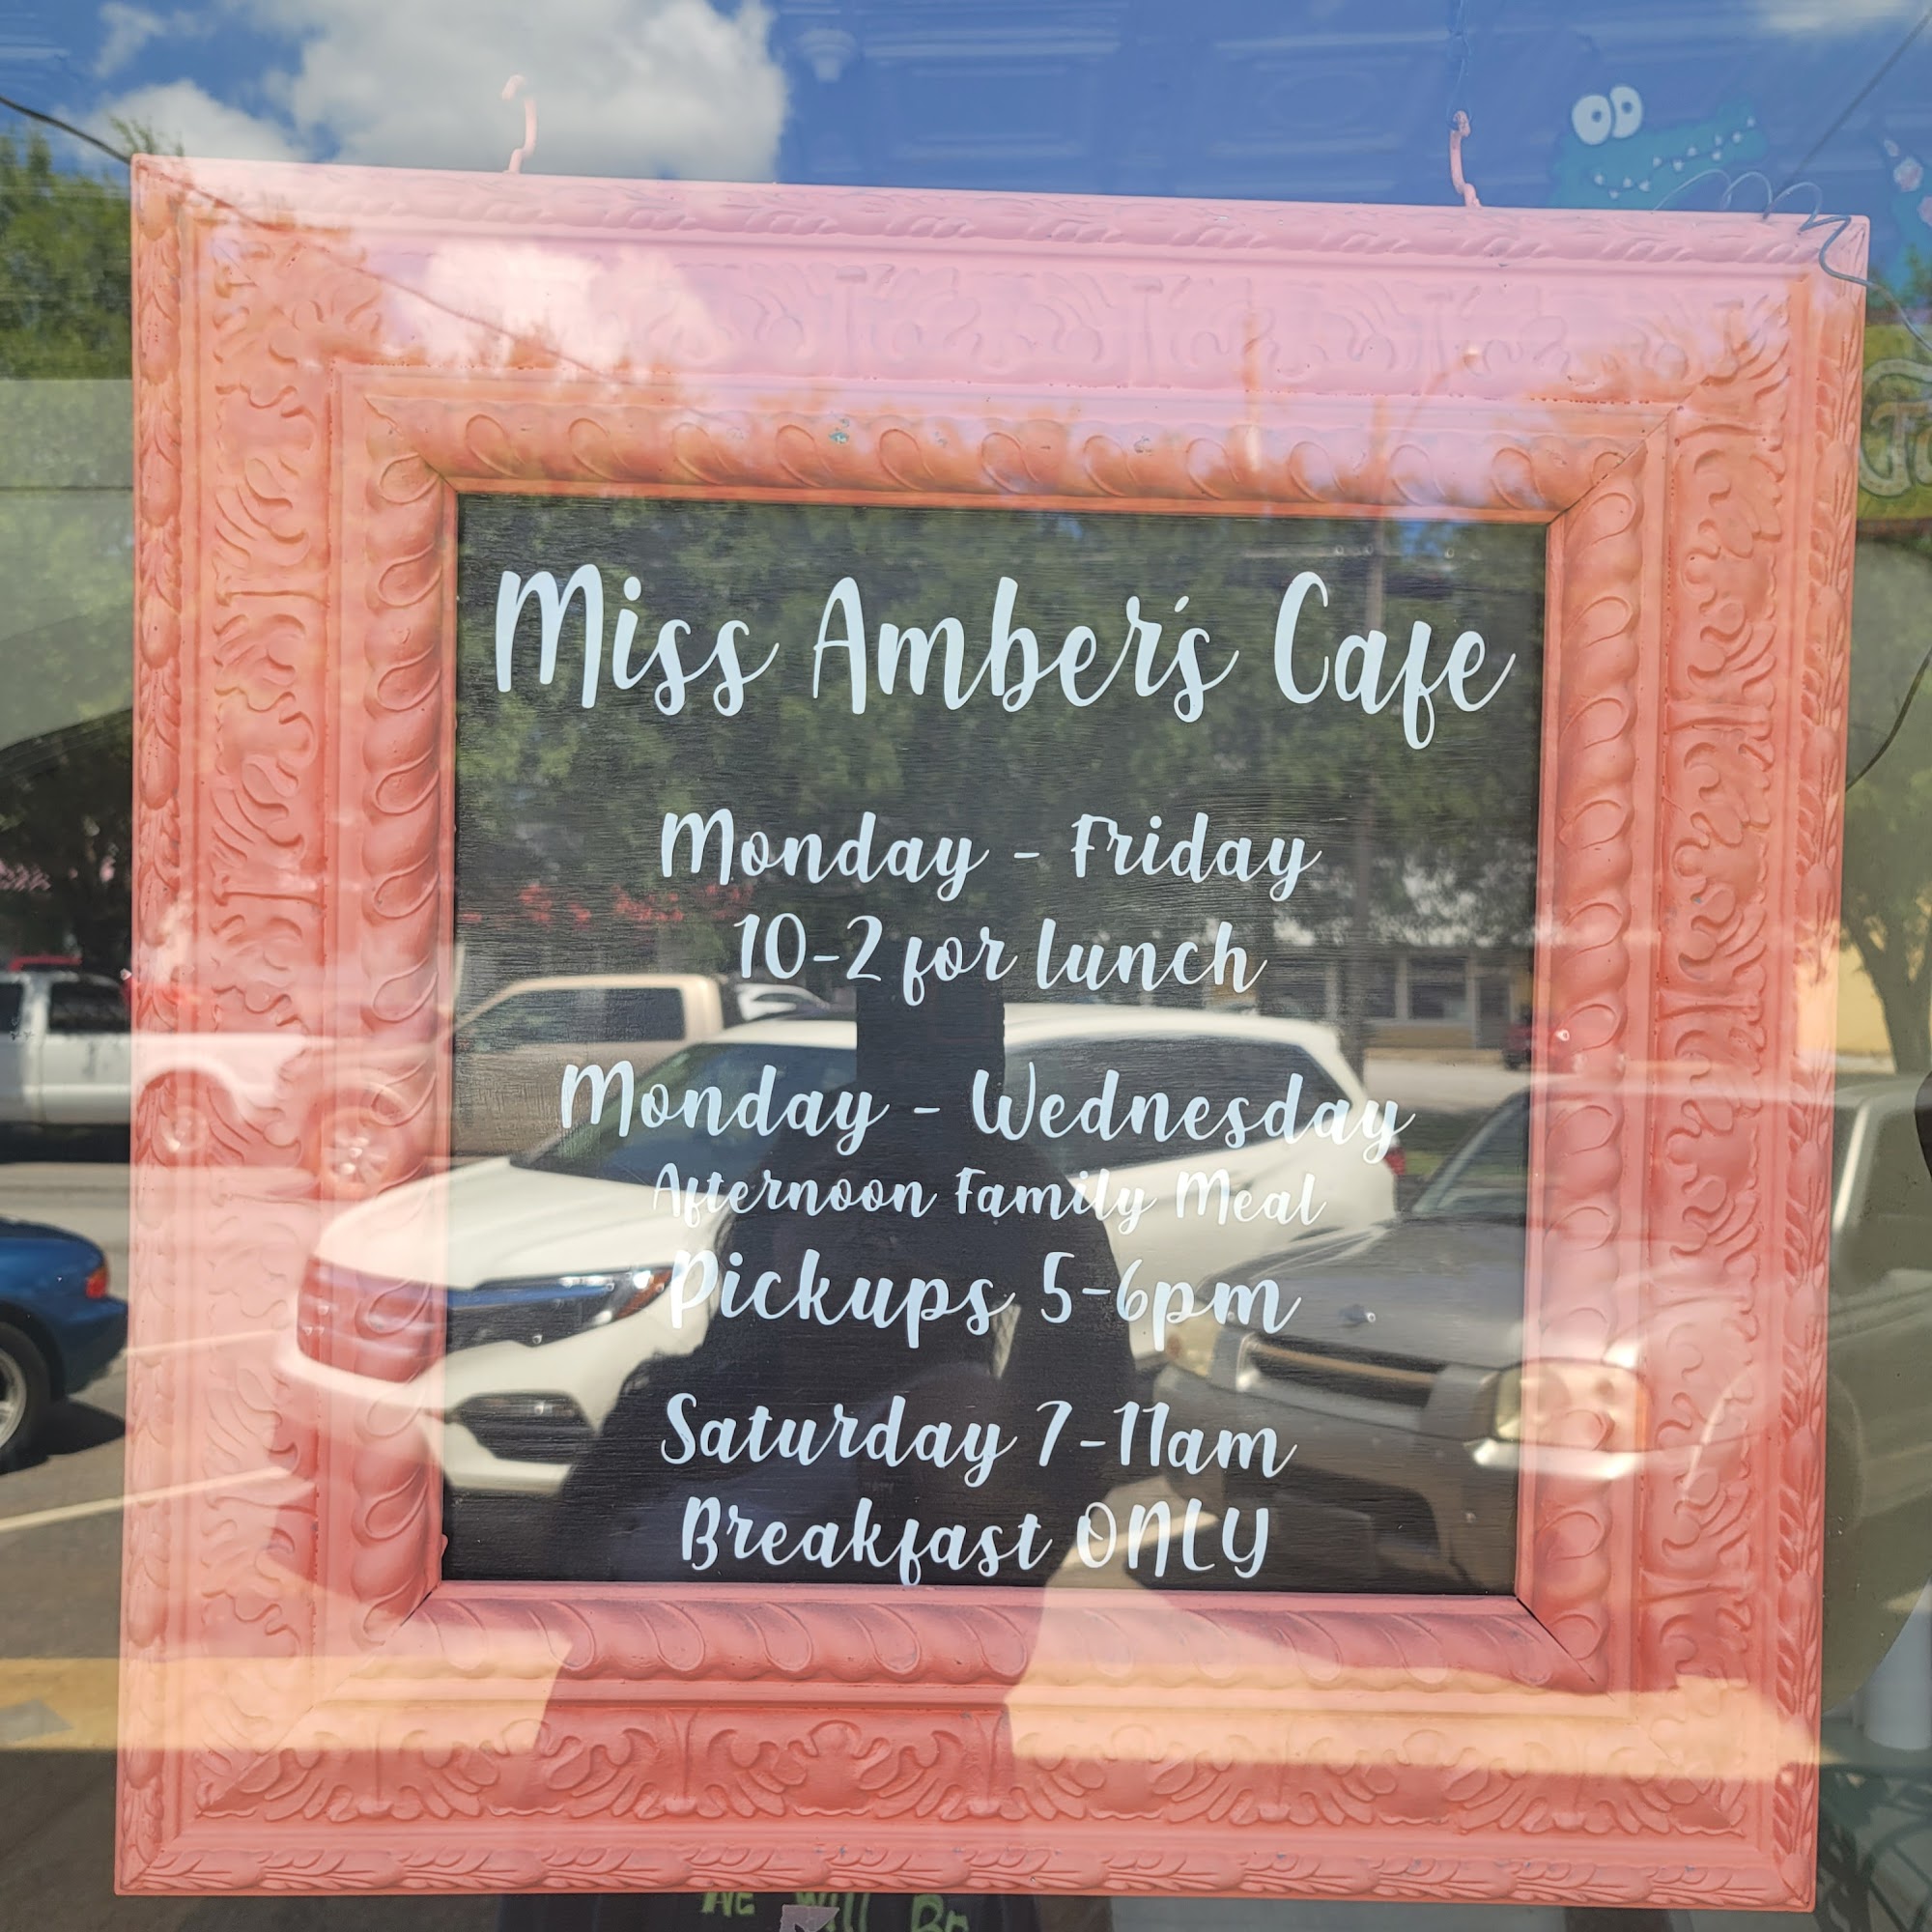 Miss Amber's Cafe
Monday - Friday
10-2 for lunch
Monday - Wednesday
Afternoon Family Meal
Pickups 5-6pm
Saturday 7-11am
Breakfast ONLY
We Will Be